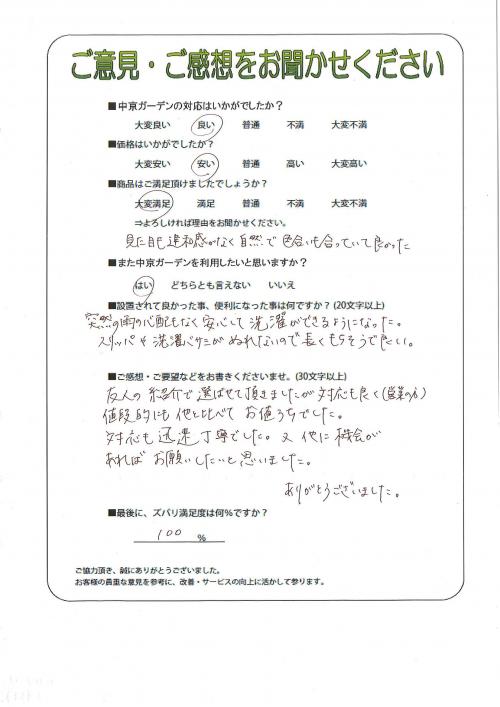 ご意見・ご感想をお聞かせください
■中京ガーデンの対応はいかがでしたか？
大変良い 良い 普通 不満 大変不満
■価格はいかがでしたか？
大変安い 安い 普通 高い 大変高い
■商品はご満足頂けましたでしょうか？
大変満足 満足 普通 不満 大変不満
⇒よろしければ理由をお聞かせください。
見た目も違和感がなく自然で色合いも合っていて良かった
■また中京ガーデンを利用したいと思いますか？
はい どちらとも言えない いいえ
■設置されて良かった事、便利になった事は何ですか？(20文字以上)
突然の雨の心配もなく安心して洗濯ができるようになった。
スリッパや洗濯バサミがぬれないので長くもちそうでうれしい。
■ご感想・ご要望などをお書きくださいませ。(30文字以上)
友人の紹介で選ばせて頂きましたが対応も良く(営業の方)
値段的にも他と比べてお値うちでした。
対応も迅速丁寧でした。又他に機会が
あればお願いしたいと思いました。
ありがとうございました。
■最後に、ズバリ満足度は何％ですか？
100 ％
ご協力頂き、誠にありがとうございました。
お客様の貴重な意見を参考に、改善・サービスの向上に活かして参ります。